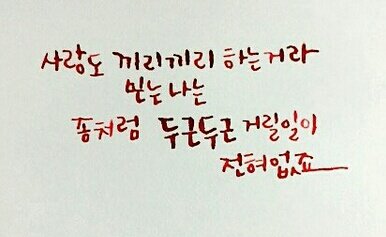 사랑도 끼리끼리 하는거라
믿는 나는
좀처럼 두근두근 거릴일이
전혀없죠